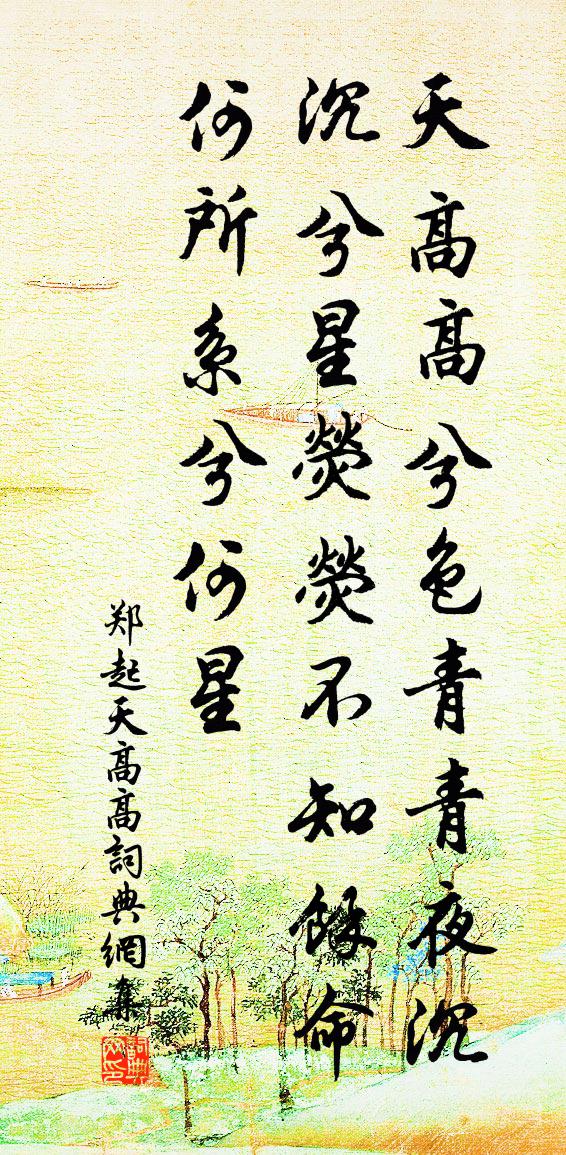 天高高兮色青青夜沉
沉兮星熒熒不知餘命
何所系兮何星
郑起天高高詞典網集